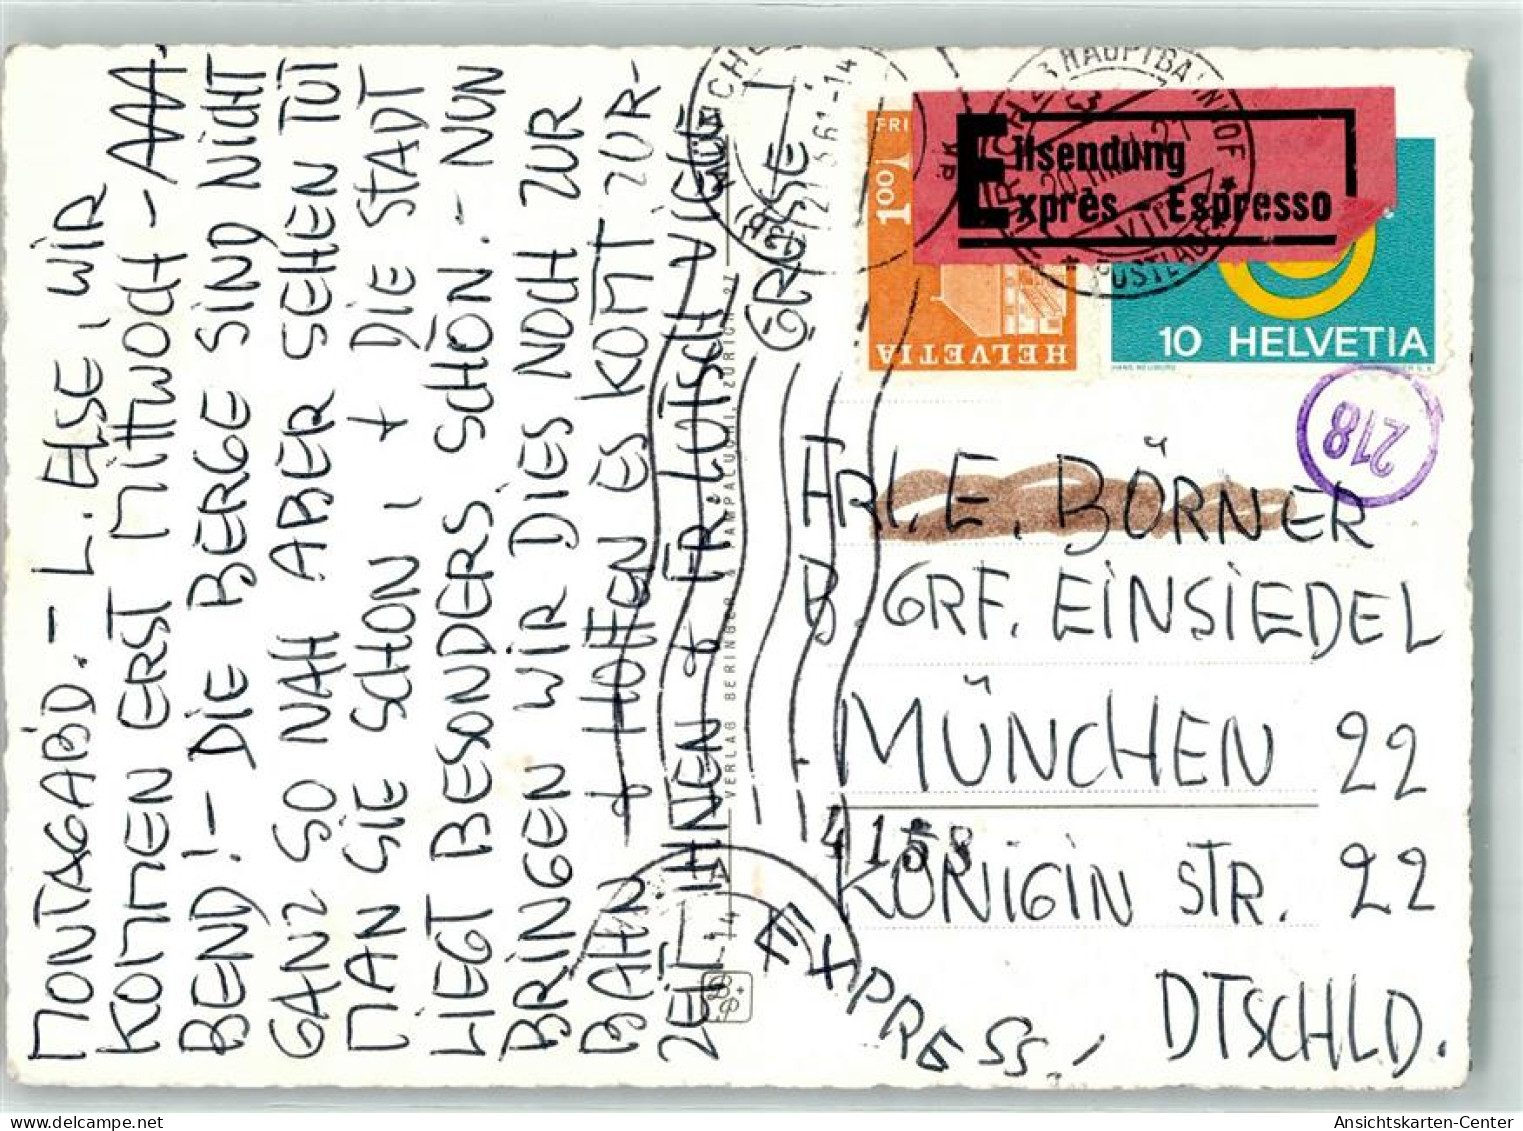 MONTAGABD. - L. ELSE, WIR
KOMMEN ERST MITTWOCH -
BEND! - DIE BERGE SIND NICHT
GANZ SO NAH ABER SEHEN TUT
MAN SIE SCHON, + DIE STADT
LIEGT BESONDERS SCHÖN. - NUN
BRINGEN WIR DIES NOCH ZUR
BAHN & HOFFEN ES KOMT ZUR-
ZEIT IHNEN & FR. LUTSCH VIELE
GRÜSSE
VERLAG BERINGER & PAMPALUCHI, ZÜRICH
B+P
FRI
1.00
HELVETIA
Eilsendung
Exprès - Espresso
HAUPTBAHNHOF
10 HELVETIA
HANS NEUBURG
218
FRL. E. BÖRNER
B. GRF. EINSIEDEL
MÜNCHEN 22
4158
KÖNIGIN STR. 22
DTSCHLD.
EXPRESS!
Ansichtskarten-Center